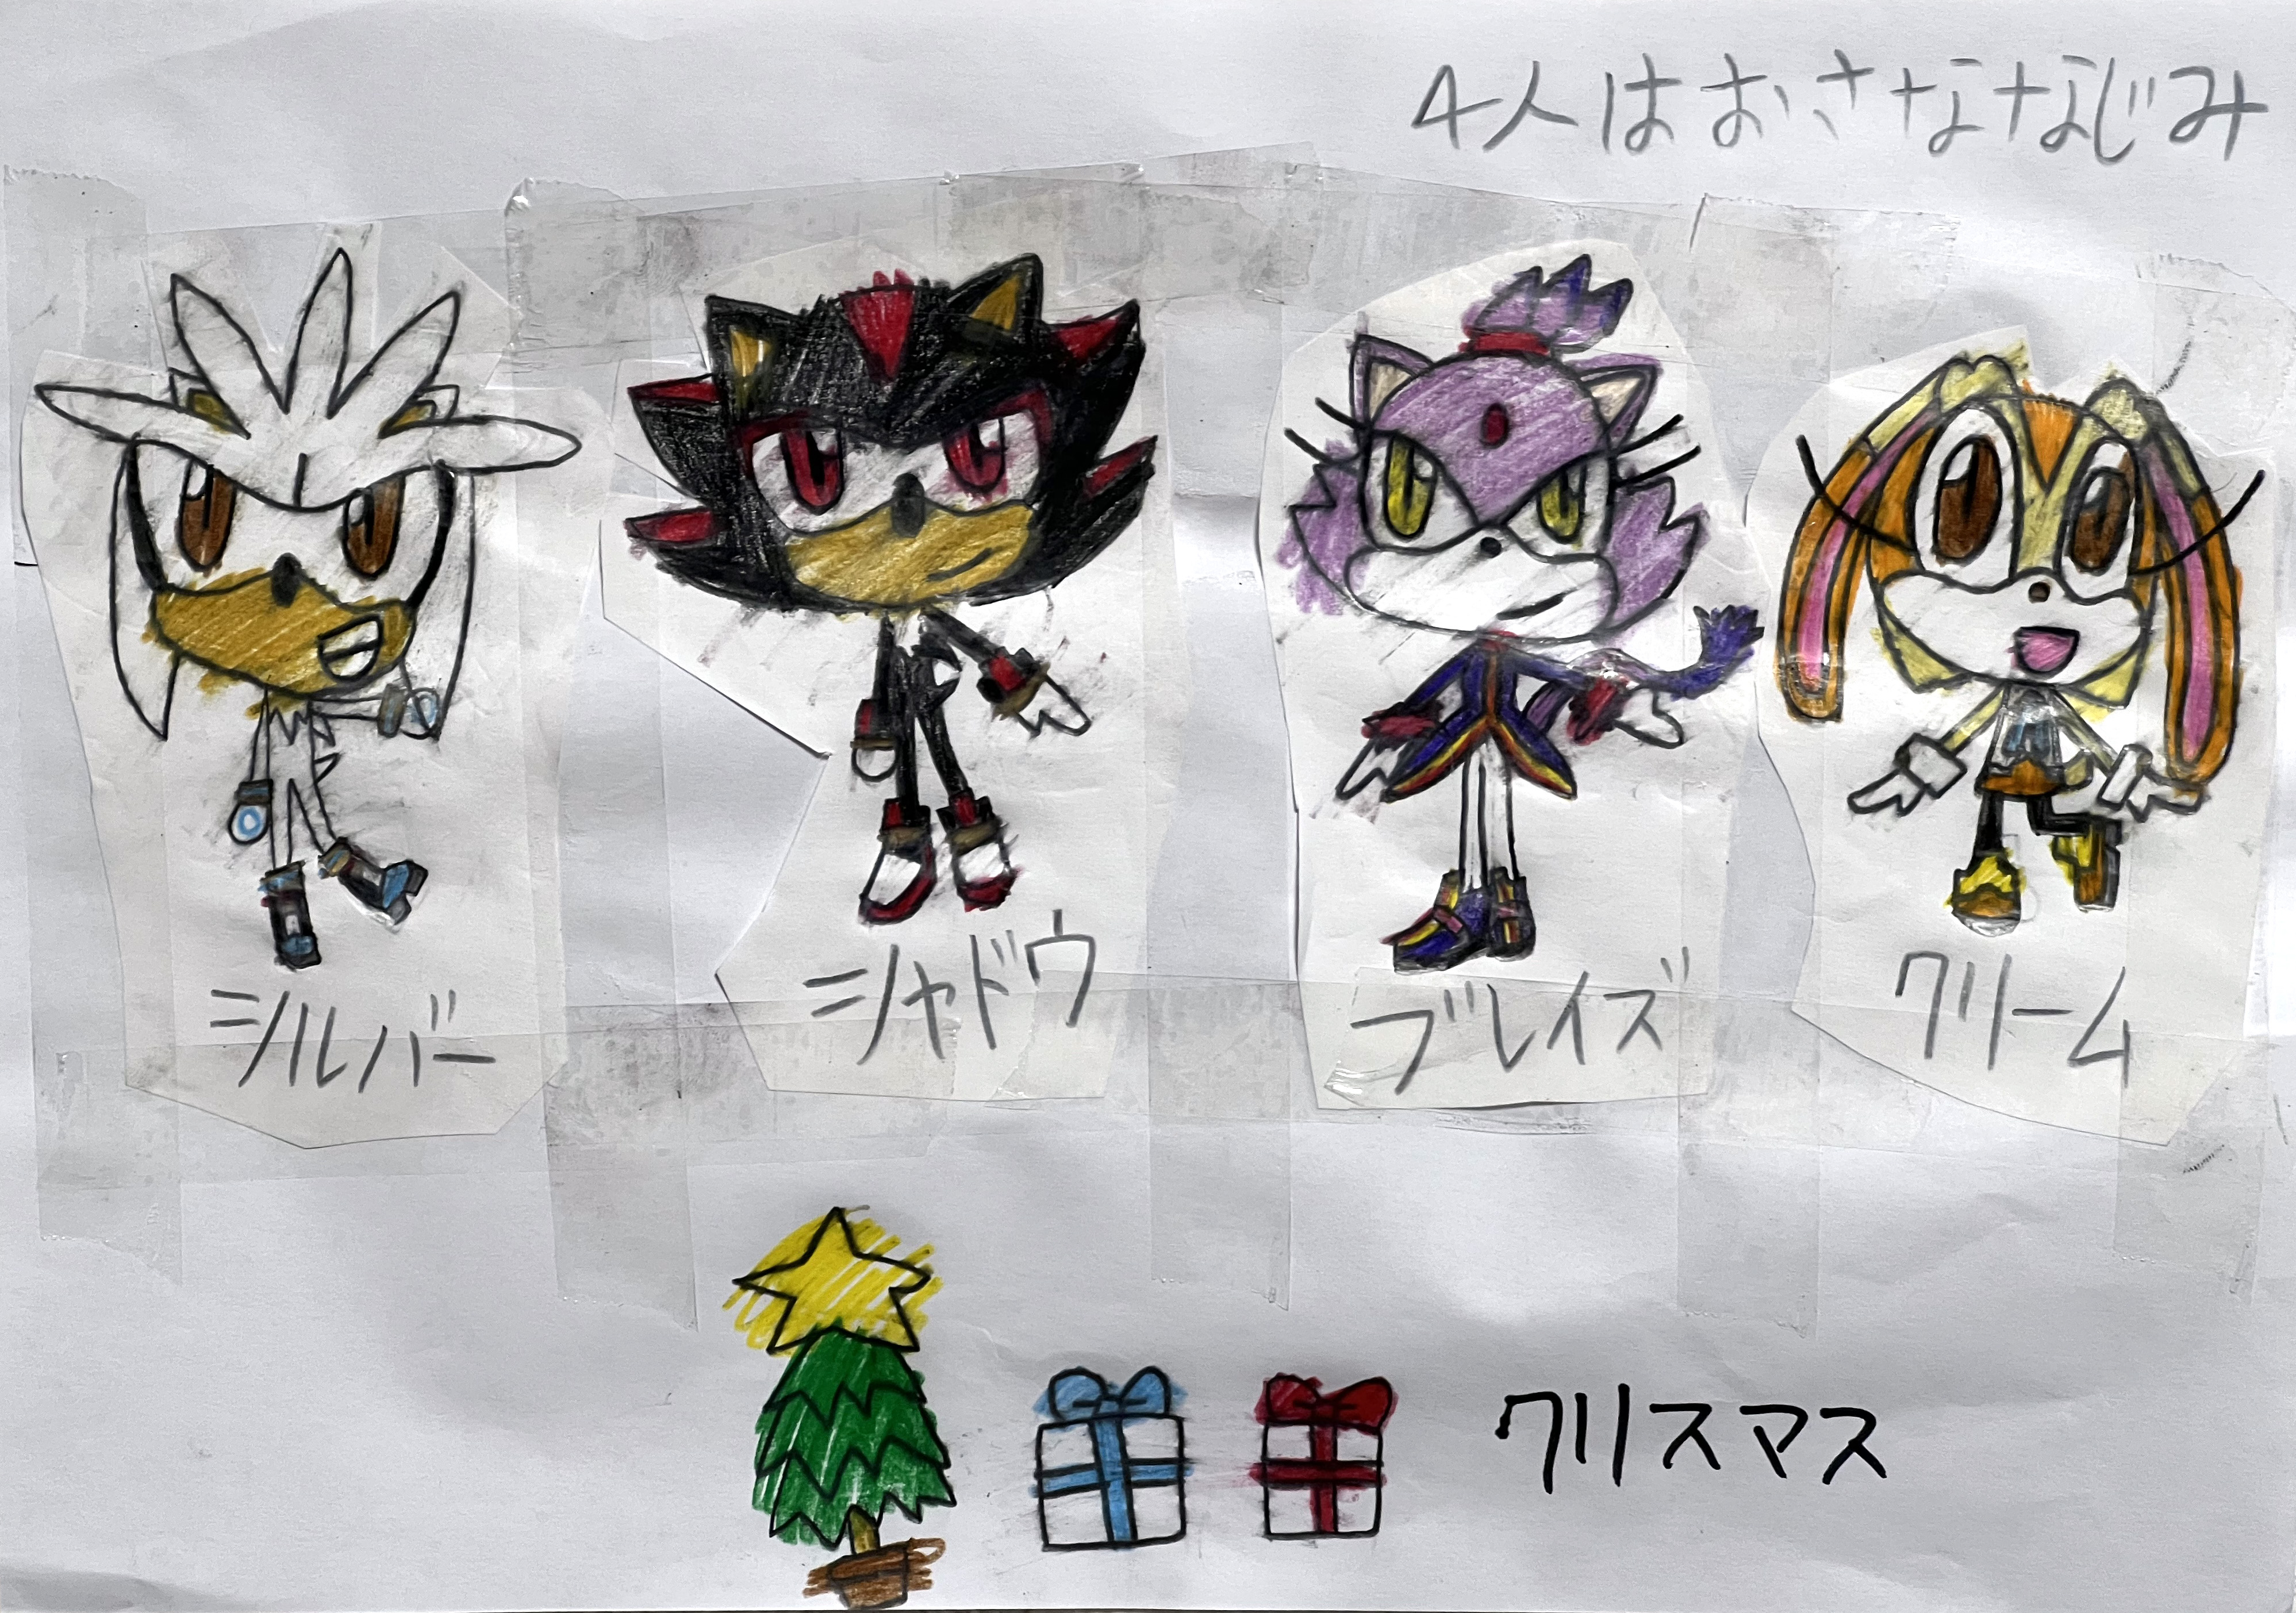 4人はおさななじみ
シルバー
シャドウ
ブレイズ
クリーム
クリスマス